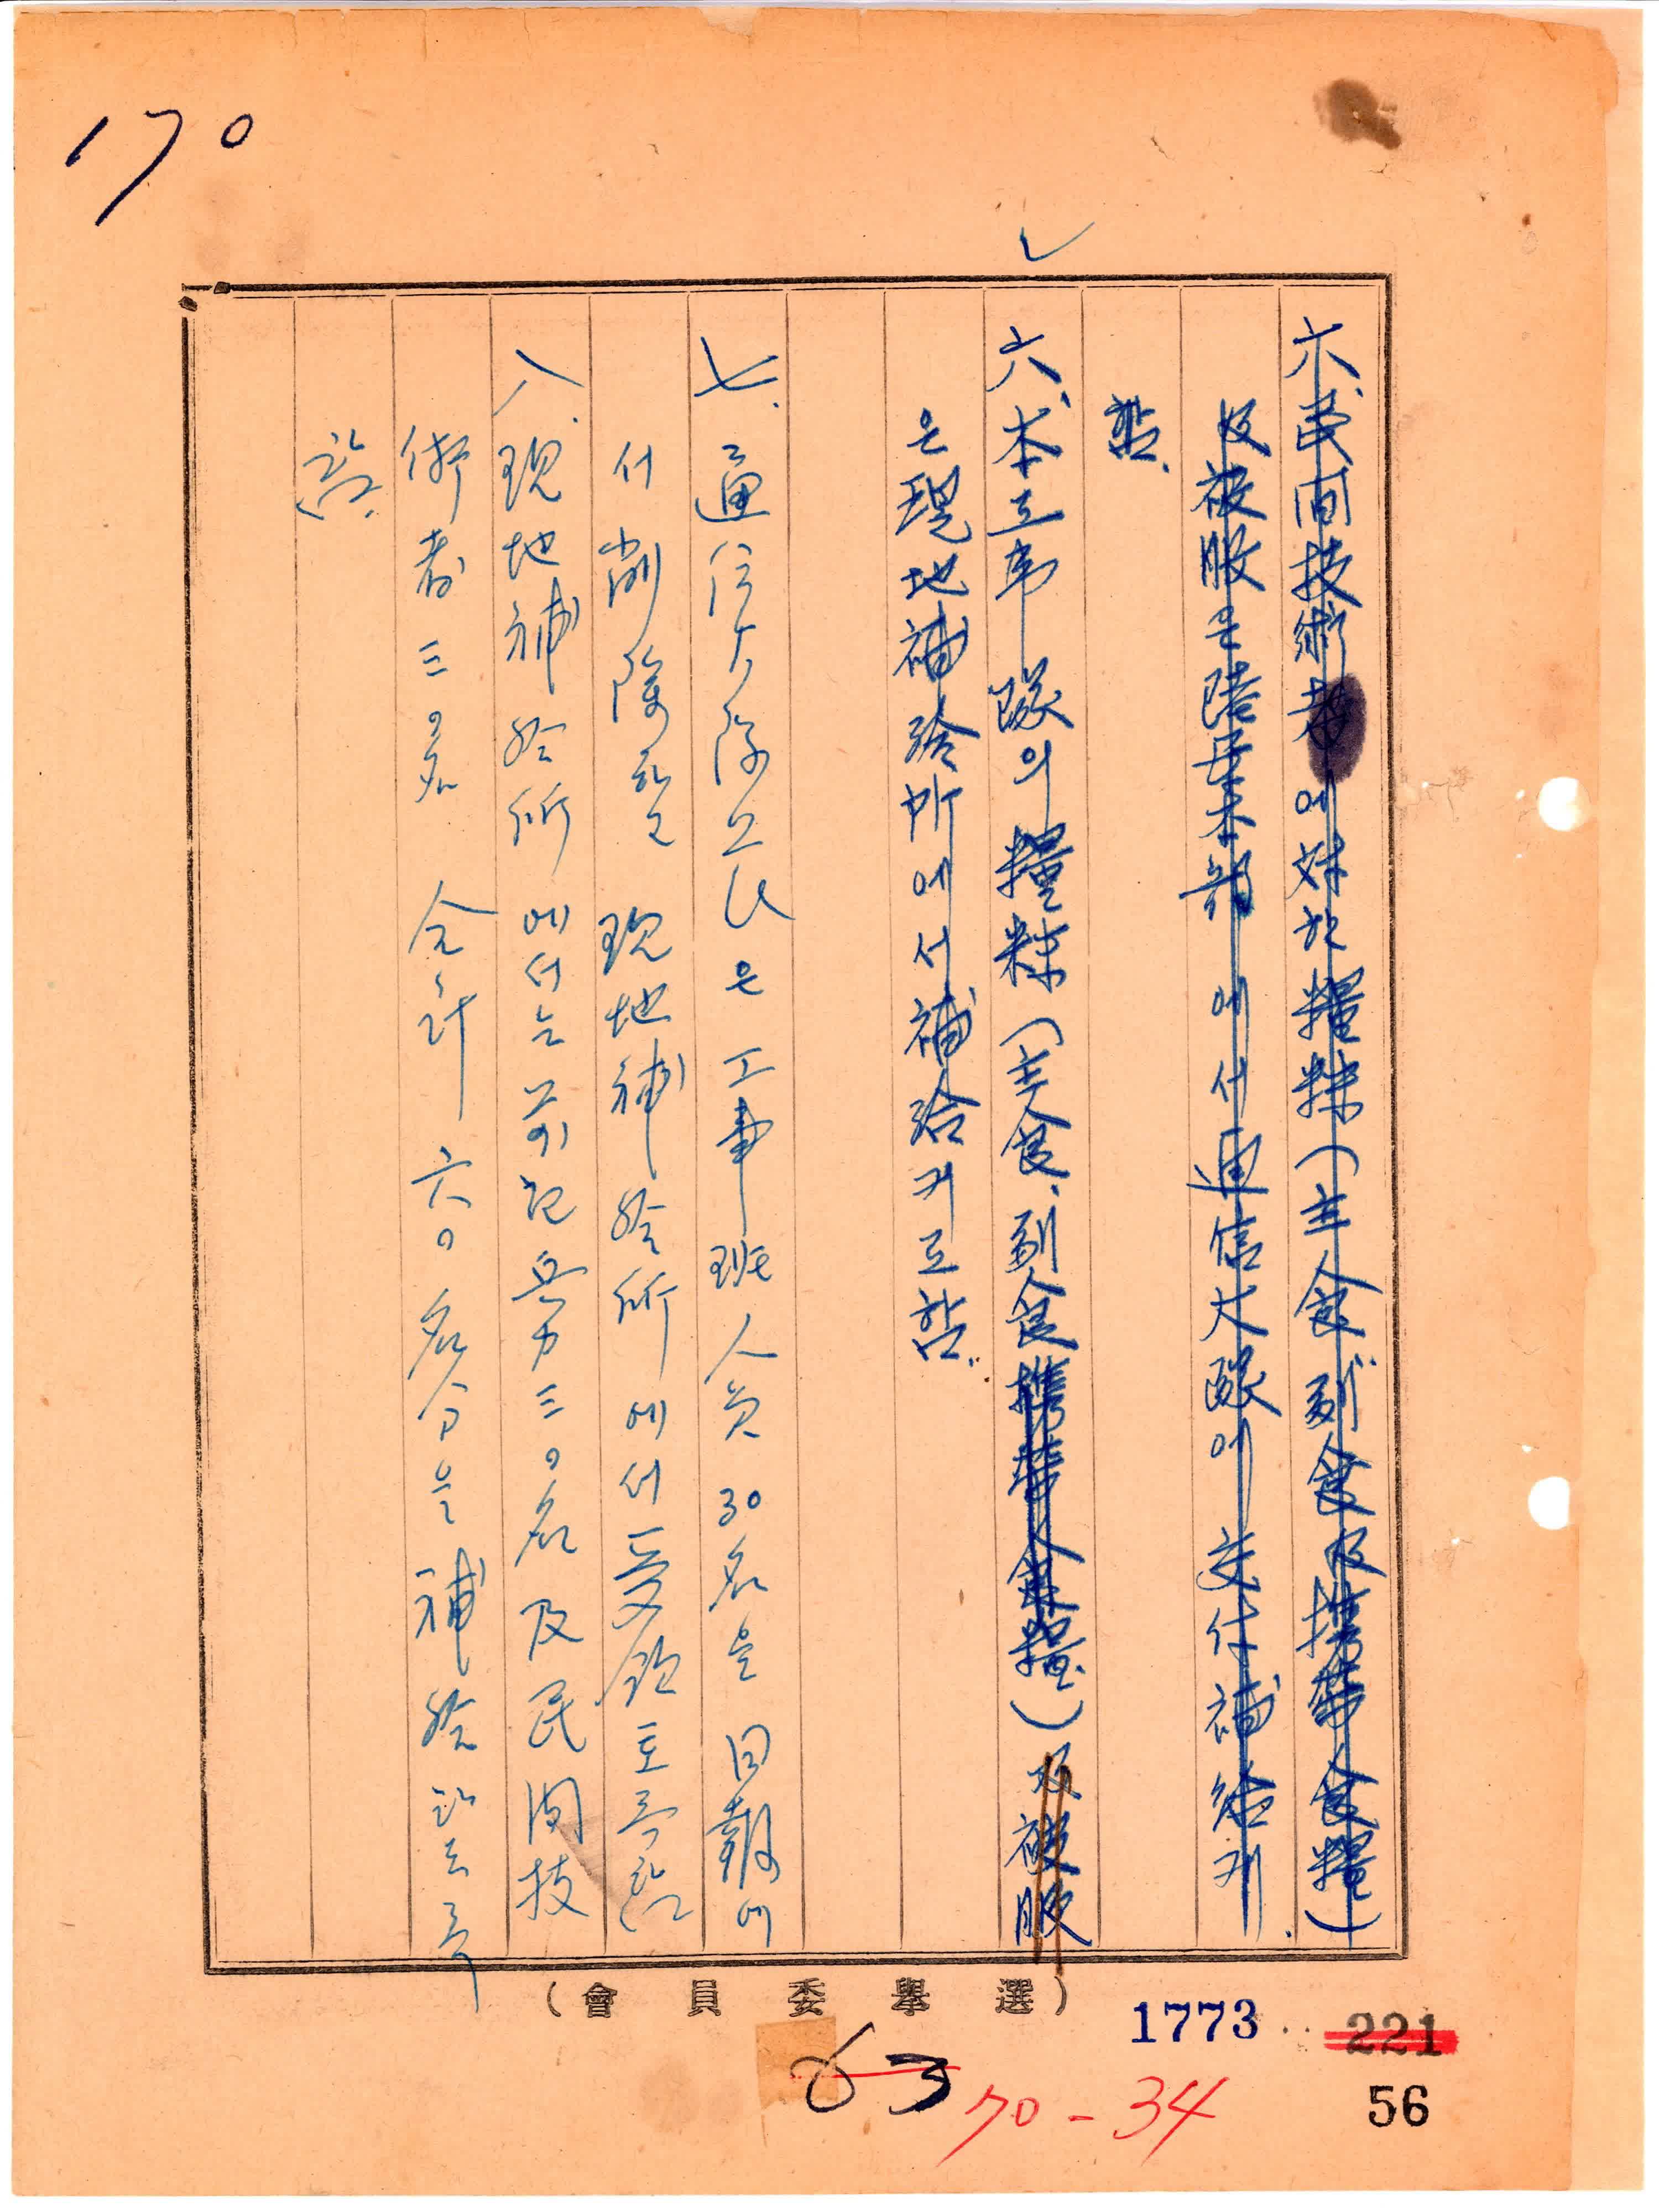 170
六、民间技術者에 対한 糧粖(主食、副食及携帯食糧)
及被服은 陸軍本部에서 通信大隊에 交付補給케
함.
六、本工事隊의 糧粖(主食、副食携帯食糧)及被服
은 現地補給所에서 補給키로함.
七. 通信大隊으로 은 工事班人員30名을 日報에
서 削除하고 現地補給所에서 受領토록함
八. 現地補給所에서는 前記兵力三〇名及民间技
術者三〇名 合計 六〇名分을 補給하도록
함.
(選擧委員會)
1773
221
56
63
70-34